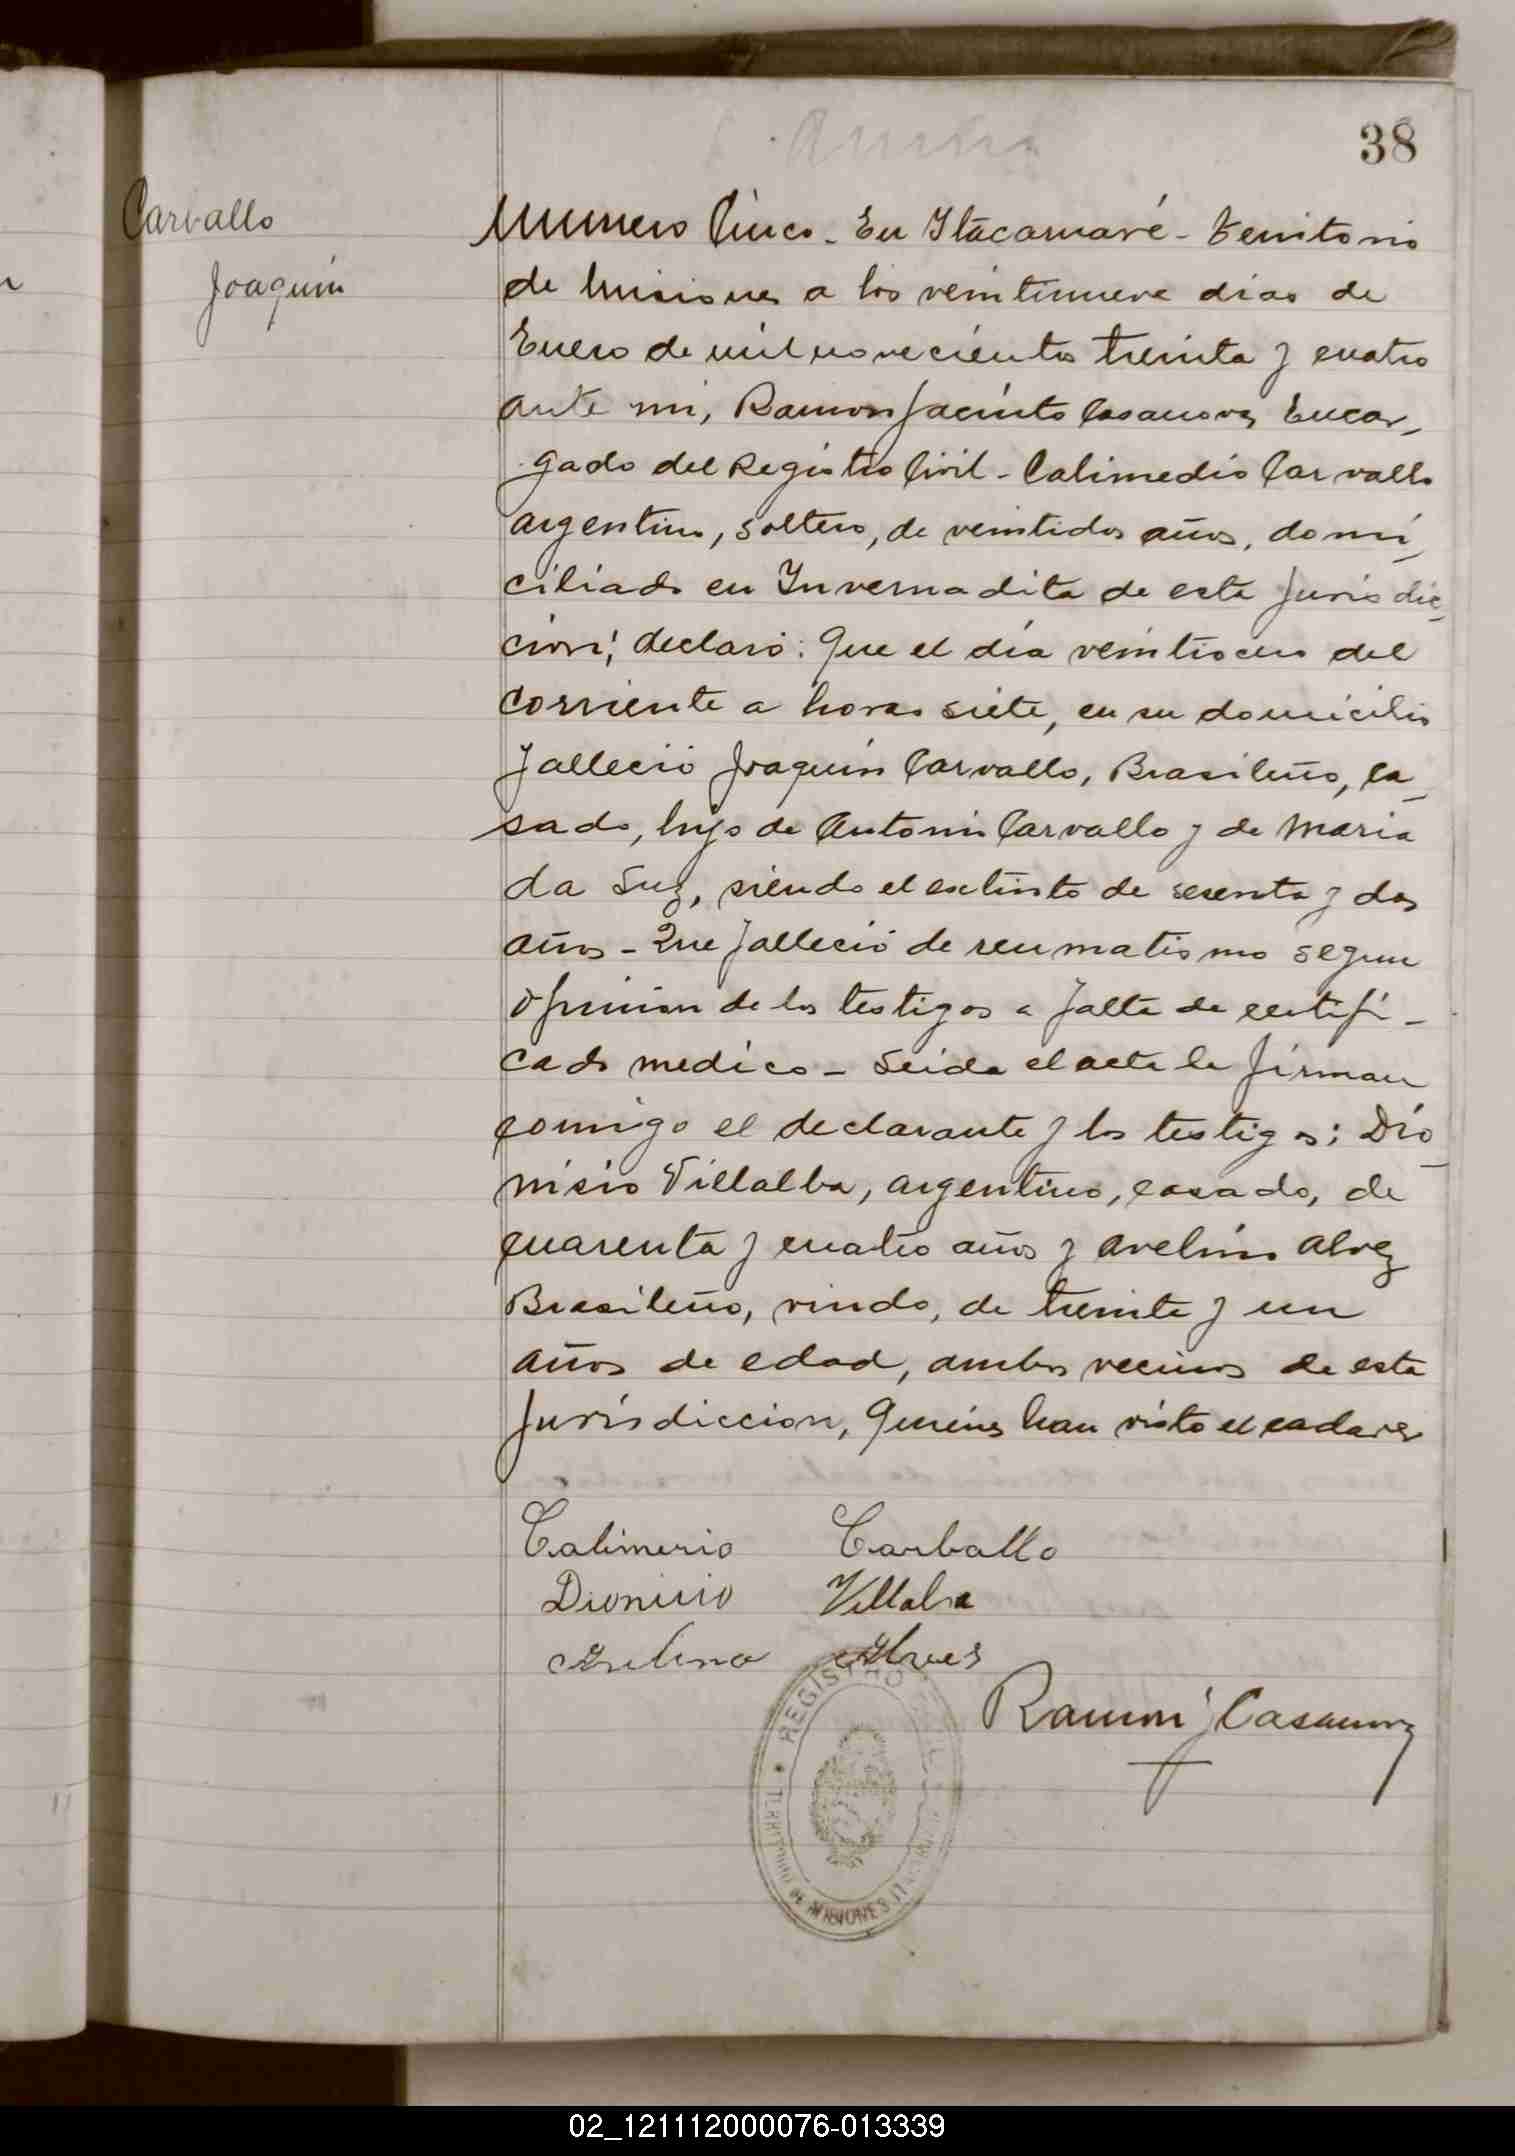 38
Carvallo
Joaquin
Numero Cinco. En Itacaruaré - Territorio
de Misiones a los veintinueve dias de
Enero de mil novecientos treinta y cuatro
ante mi, Ramon Jacinto Casanova Encar,
gado del Registro Civil - Calimedio Carvallo
argentino, soltero, de veintidos años, domi,
ciliado en Invernadita de esta Jurisdic,
cion; declaró: Que el dia del
corriente a horas siete, en su domicilio
falleció Joaquin Carvallo, Brasileño, ca_
sado, hijo de Antonio Carvallo y de Maria
da Luz, siendo el extinto de sesenta y dos
años - Que falleció de reumatismo segun
opinion de los testigos a falta de certifi_
cado medico - Leida el acta la firman
comigo el declarante y los testigos; Dio_
nisio Villalba, argentino, casado, de
cuarenta y cuatro años y Avelino Alvez
Brasileño, viudo, de treinta y un
años de edad, ambos vecinos de esta
Jurisdiccion, Quienes han visto el cadaver
Calimerio Carballo
Dionicio Villalba
Avelino Alves
Ramon J Casanova
REGISTRO CIVIL
TERRITORIO DE MISIONES
02_121112000076-013339